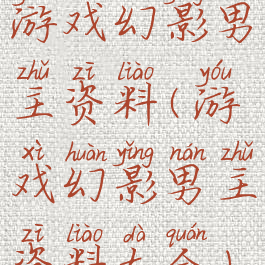 游戏幻影男
zhǔ zī liào yóu
主资料(游
xì huàn yǐng nán zhǔ
戏幻影男主
zī liào dà quán
资料大全)